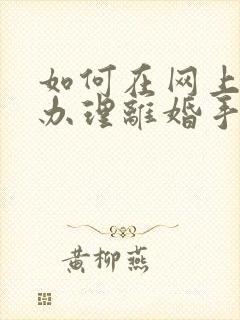 如何在网上
办理離婚手
黄柳燕